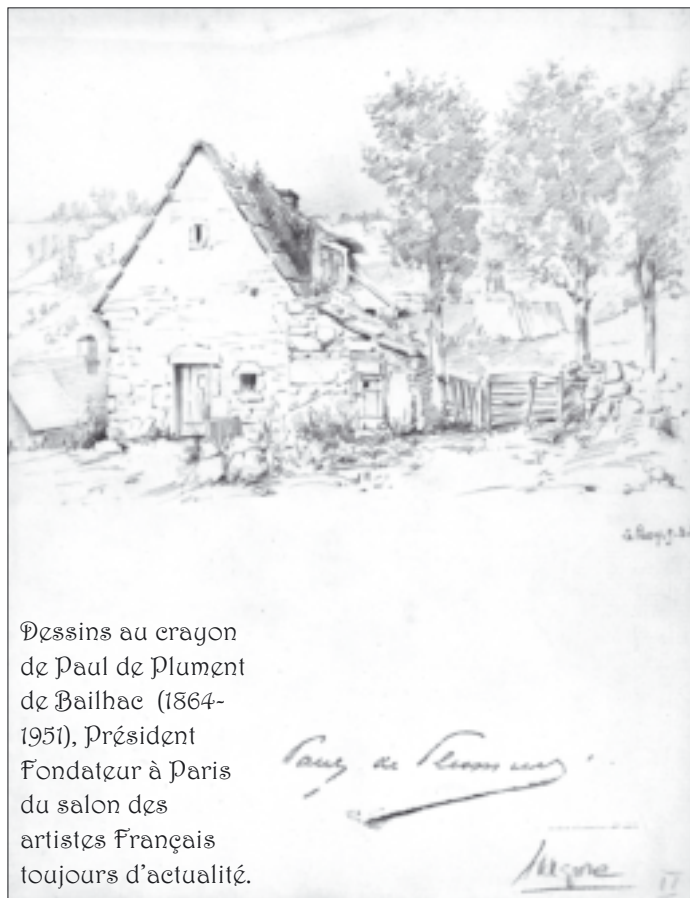 Dessins au crayon
de Paul de Plument
de Bailhac (1864-
1951), Président
Fondateur à Paris
du salon des
artistes Français
toujours d'actualité.
Paul de Plument